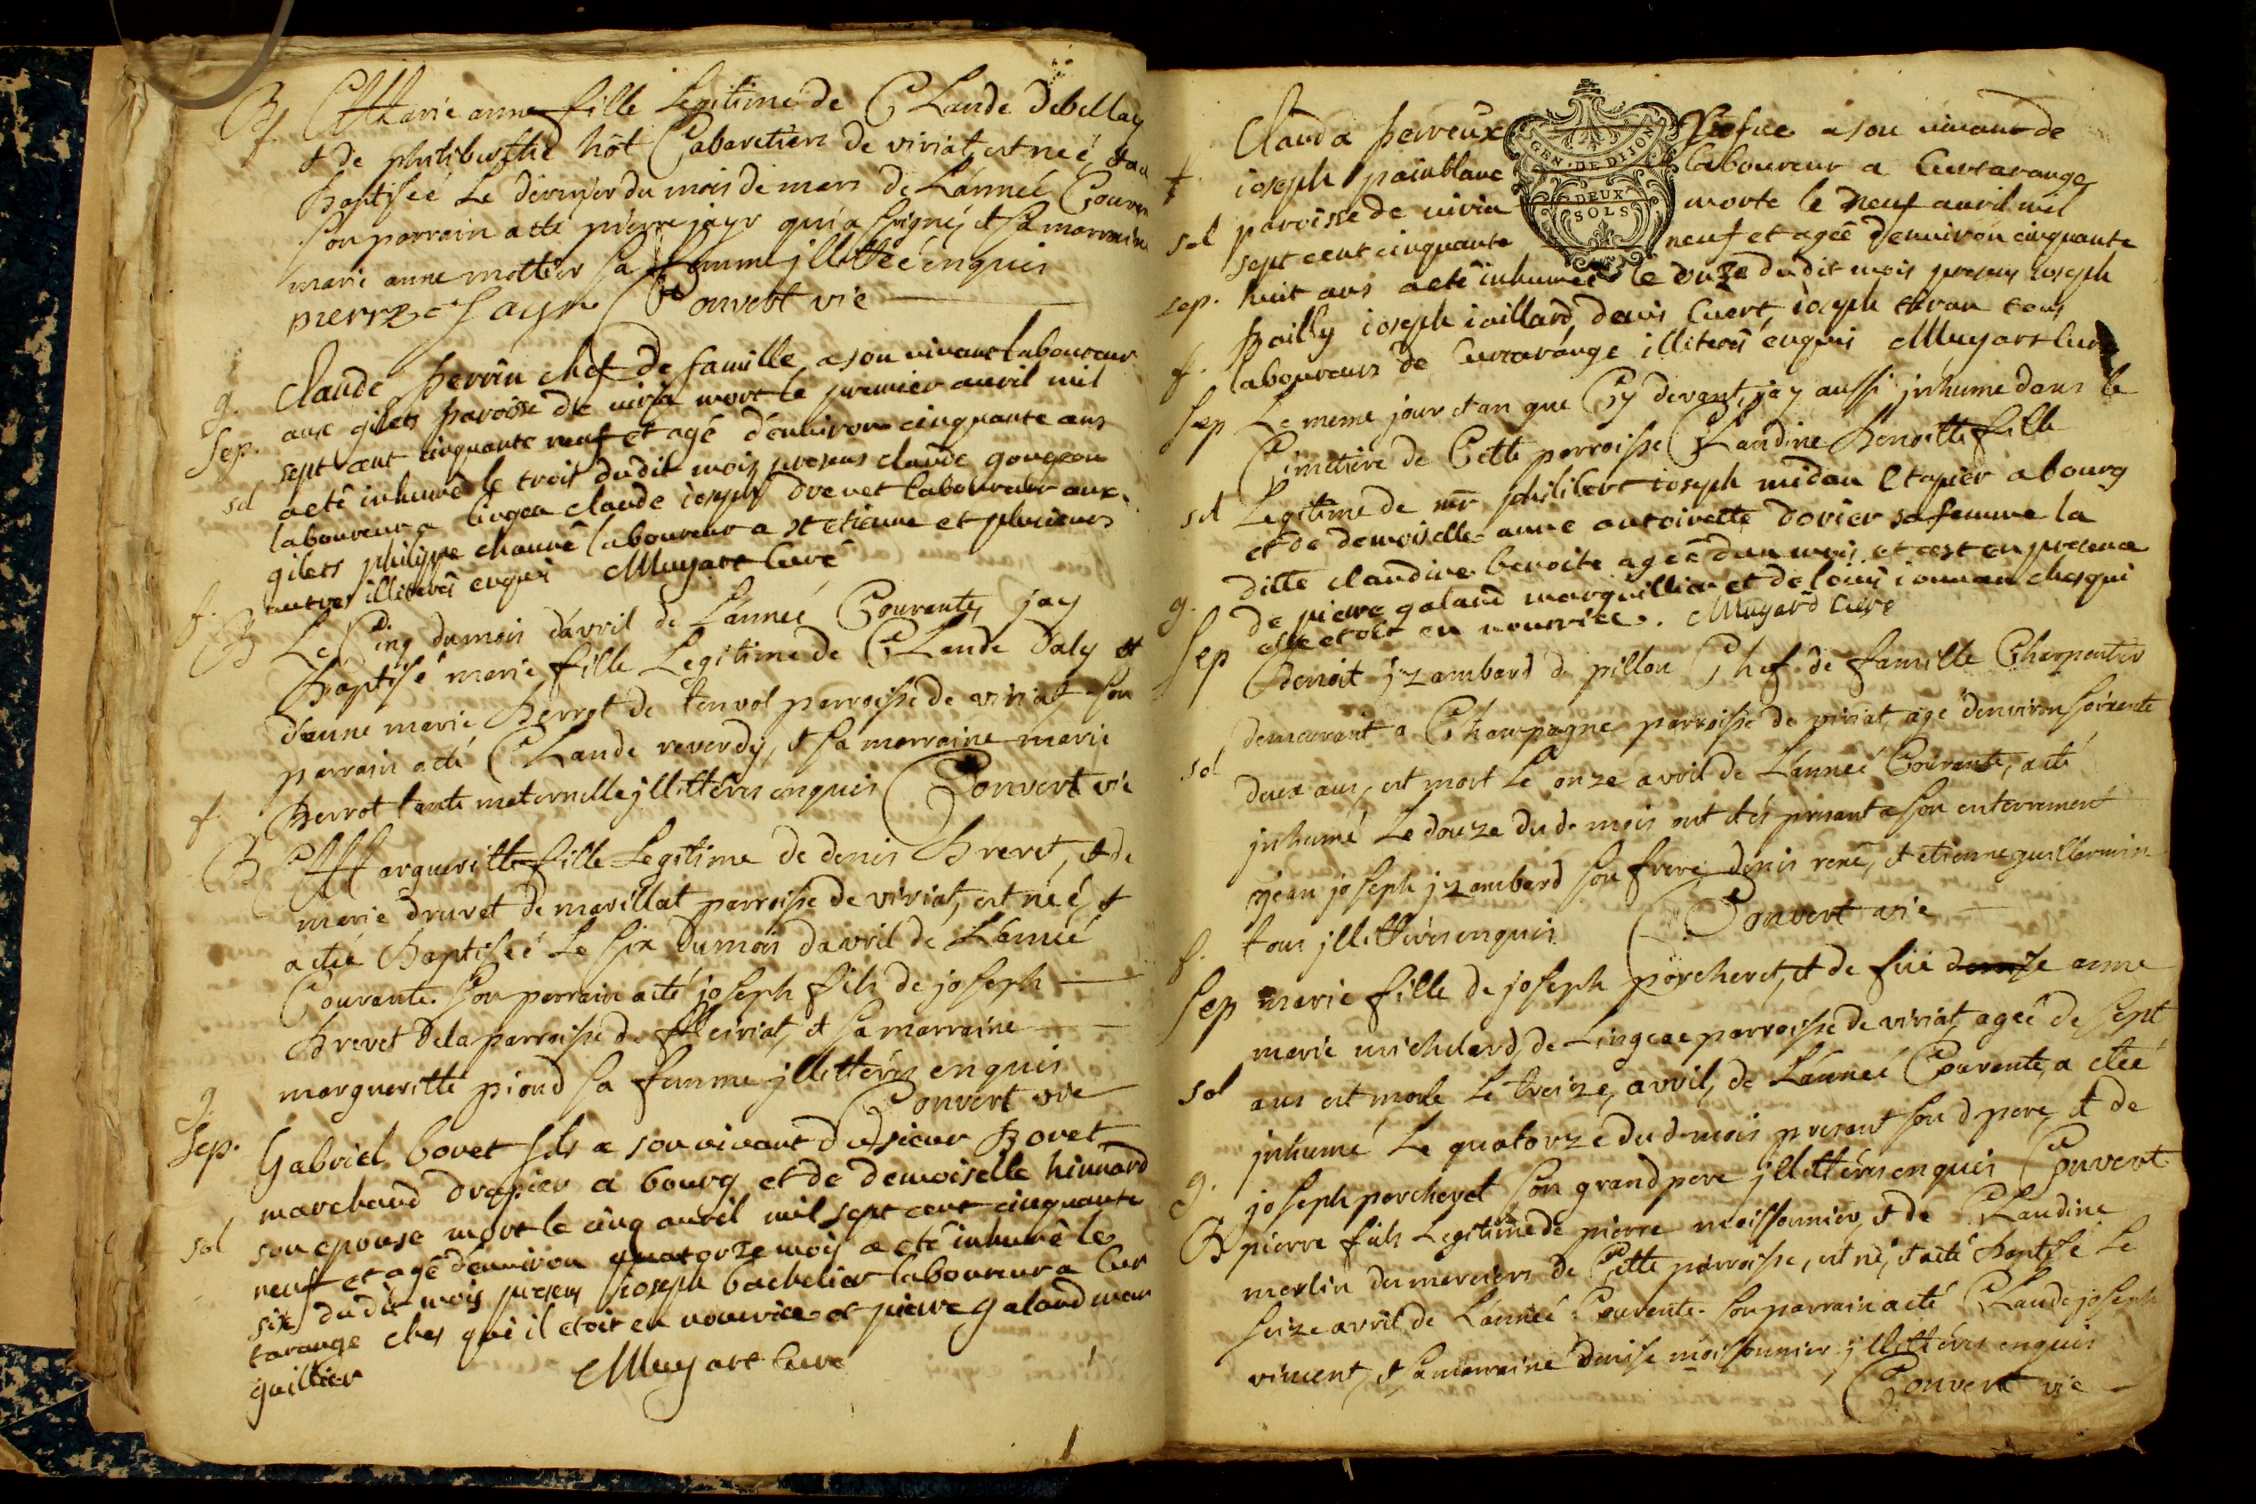 B Marie anne fille Legitime de CLaude debellay
f. & de philiberthe hôt Cabaretiers de viriat est neé, & a eté
baptiseé Le dernier du mois de mars de L'anneé Courante
son parrain a eté pierre jayr qui a signé, & sa marraine
marie anne mottier sa femme jllitteé enquis
pierre Jayr Convert vic
g. Claude perrin chef de famille a son vivant laboureur
sep. aux gilets paroisse de viria mort le premier avril mil
sept cent cinquante neuf et agé d'environ cinquante ans
sd a eté inhumé le trois dudit mois presens claude goujon
laboureur a lingea claude ioseph drevet laboureur aux
gilets philippe chanvé laboureur a st etienne et plusieurs
f. autres illiterés enquis Muyart Curé
B Le Cinq du mois d'avril de L'anneé Courante, jay
baptisé marie fille Legitime de CLaude daly &
d'anne marie berrot de tenvol parroisse de viriat son
parrain a eté CLaude reverdy, & sa marraine marie
f berrot tante maternelle jllitterés enquis Convert vic
B Marguerittte fille Legitime de denis brevet, & de
marie druvet de marillat parroisse de viriat, est neé, &
a eté baptiseé Le six du mois d'avril de L'anneé
Courante. son parrain a eté joseph fils de joseph
brevet de la parroisse de Meiriat, & sa marraine
g margueritte piond sa femme jllitterés enquis
Convert vic
Sep. Gabriel bovet fils a son vivant du sieur bovet
marchand drapier a bourg et de demoiselle hinnard
sol son epouse mort le cinq avril mil sept cent cinquante
neuf et agé d'environ quatorze mois a eté inhumé le
six dudit mois presens joseph bachelier laboureur a Cur
tarange ches qui il etoit en nourrice et pierre galand mar
guillier Muyart Curé
Clauda perreux GEN. DE DIJON DEUX SOLS vefue a son vivant de
f ioseph painblanc laboureur a Curtarange
sol paroisse de viria morte le neuf avril mil
sept cent cinquante neuf et agée d'environ cinquante
sep. huit ans a eté inhumée le douze dudit mois presens ioseph
bailly ioseph iaillard denis Cuert ioseph tous
f. laboureurs de Curtarange illiterés enquis Muyart Curé
Sep Le meme jour et an que Cy devant, jay aussi jnhumé dans le
Cimetiere de Cette parroisse CLaudine benoitte fille
sd Legitime de mr philibert ioseph midan Etapier a bourg
et de demoiselle anne antoinette dorier sa femme la
ditte claudine benoite ageé d'un mois et cest en presence
g. de pierre galand marguillier et de loüis ches qui
elle etoit en nourrice. Muyard Curé
Sep Benoit jzambard de pillon Chef de famille Charpentier
demeurant a Champagne parroisse de viriat, agé d'environ soixante
sol deux ans, est mort Le onze avril de L'anneé Courante, a eté
jnhumé Le douze dud. mois ont etés present a son enterrement
jean joseph jzambard son frere denis rené, & etienne guillermin
f. tous jllitterés enquis Convert vic
Sep marie fille de joseph porcheret, & de feüe anne
marie micheland, de Lingeac parroisse de viriat, ageé de sept
sol ans est morte Le treize avril, de L'anneé Courante, a eteé
jnhumé Le quatorze dud. mois present son d. pere, & de
g. joseph porcheret son grand pere jllitterés enquis Convert
B pierre fils Legitime de pierre moissonnier, & de CLaudine
merlin des merciers de Cette parroisse, est né, & a eté baptisé Le
seize avril de L'anneé Courante. son parrain a eté CLaude joseph
vincent, & sa marraine denise moissonnier jllitterés enquis
Convert vic